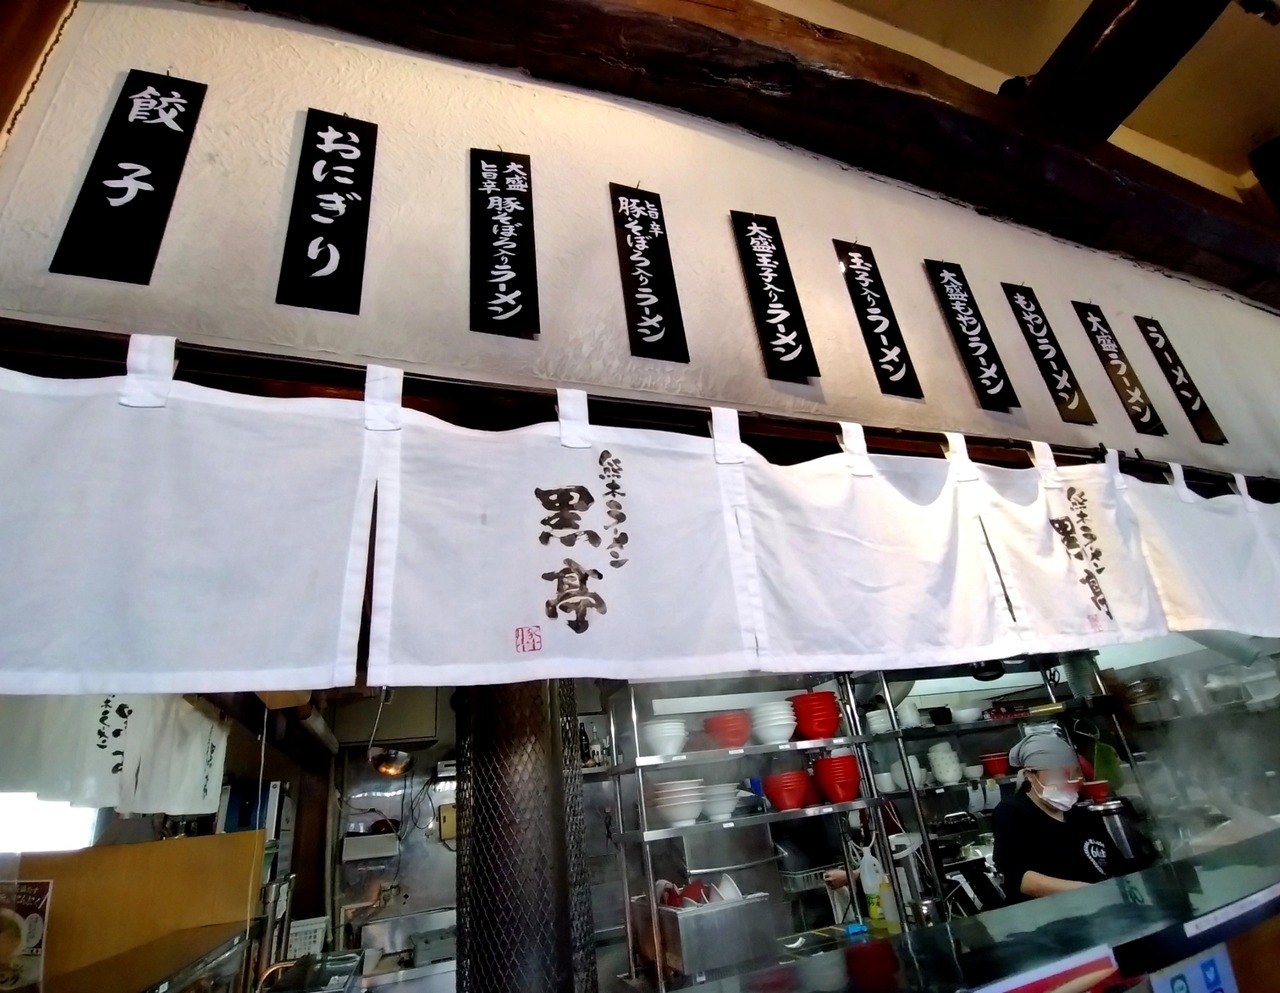 ラーメン
大盛ラーメン
もやしラーメン
大盛もやしラーメン
玉子入りラーメン
大盛玉子入りラーメン
旨辛
豚そぼろ入りラーメン
大盛
旨辛
豚そぼろ入りラーメン
おにぎり
餃子
熊本ラーメン
黒亭
熊本ラーメン
黒亭